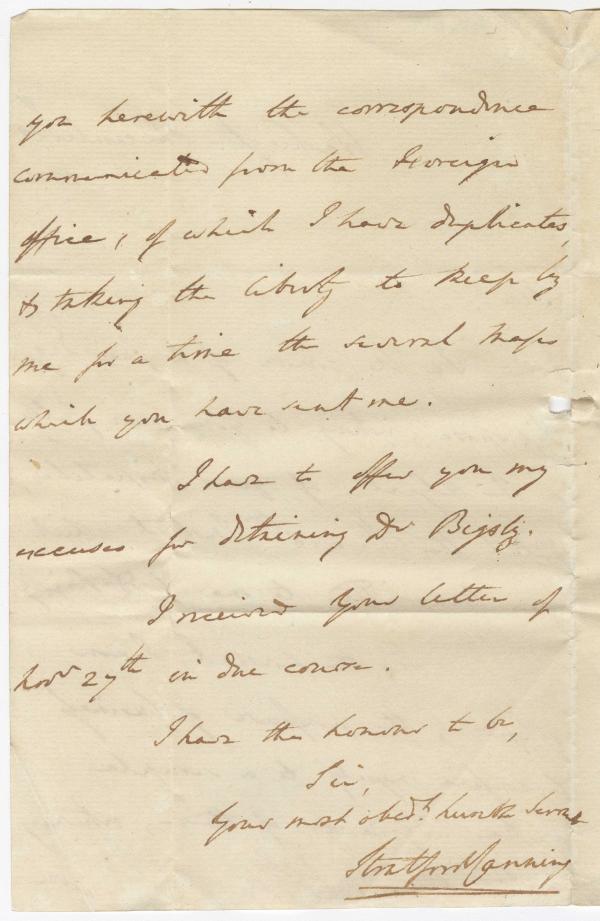 you herewith the correspondence
communicated from the Foreign
office, of which I have duplicates,
& taking the liberty to keep by
me for a time the several maps
which you have sent me.
I have to offer you my
excuses for detaining Dr Bigsby.
I received your letter of
Novr 27th in due course.
I have the honour to be,
Sir,
Your most obedt. humble Servt
Stratford Canning